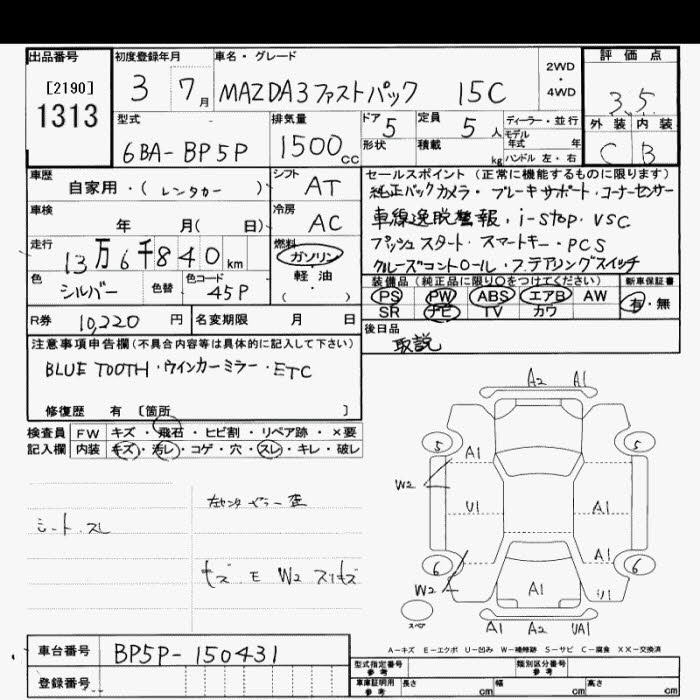 出品番号
[2190]
1313
初度登録年月
3 7月
車名・グレード
MAZDA3 ファストバック 15C
2WD
・
4WD
評価点
3.5
外装 内装
C B
型式
6BA-BP5P
排気量
1500cc
ドア 5
形状
定員 5人
積載 kg
ディーラー・並行
モデル
年式 年
ハンドル 左・右
車歴
自家用・(レンタカー)
シフト
AT
車検
年 月( 日)
冷房
AC
走行
13万6千840km
燃料
ガソリン
軽・油
( ・ )
色
シルバー
色替
色コード
45P
R券 10,220円
名変期限 月 日
セールスポイント(正常に機能するものに限ります)
純正バックカメラ・ブレーキサポート・コーナーセンサー
車線逸脱警報・i-stop・VSC
プッシュスタート・スマートキー・PCS
クルーズコントロール・ステアリングスイッチ
装備品(純正品に限り○をつけてください)
PS PW ABS エアB AW
SR ナビ TV カワ
新車保証書
有・無
後日品
取説
注意事項申告欄(不具合内容等は具体的に記入して下さい)
BLUE TOOTH・ウインカーミラー・ETC
修復歴 有 [箇所 ]
検査員 FW キズ・飛石・ヒビ割・リペア跡・×要
記入欄 内装 キズ・汚レ・コゲ・穴・スレ・キレ・破レ
シート・スレ
左センターピラー歪
キズ・E W2 スリキズ
A2 A1
5 5
A1
W2
U1 A1
A1
6 6
W2 A1 U1
スペア
A1 A2 UA1
A-キズ E-エクボ U-凹み W-補修跡 S-サビ C-腐食 XX-交換済
車台番号 BP5P-150431
登録番号
型式指定番号
参考
類別区分番号
参考
車庫証明用
参考
長さ cm 幅 cm 高さ cm